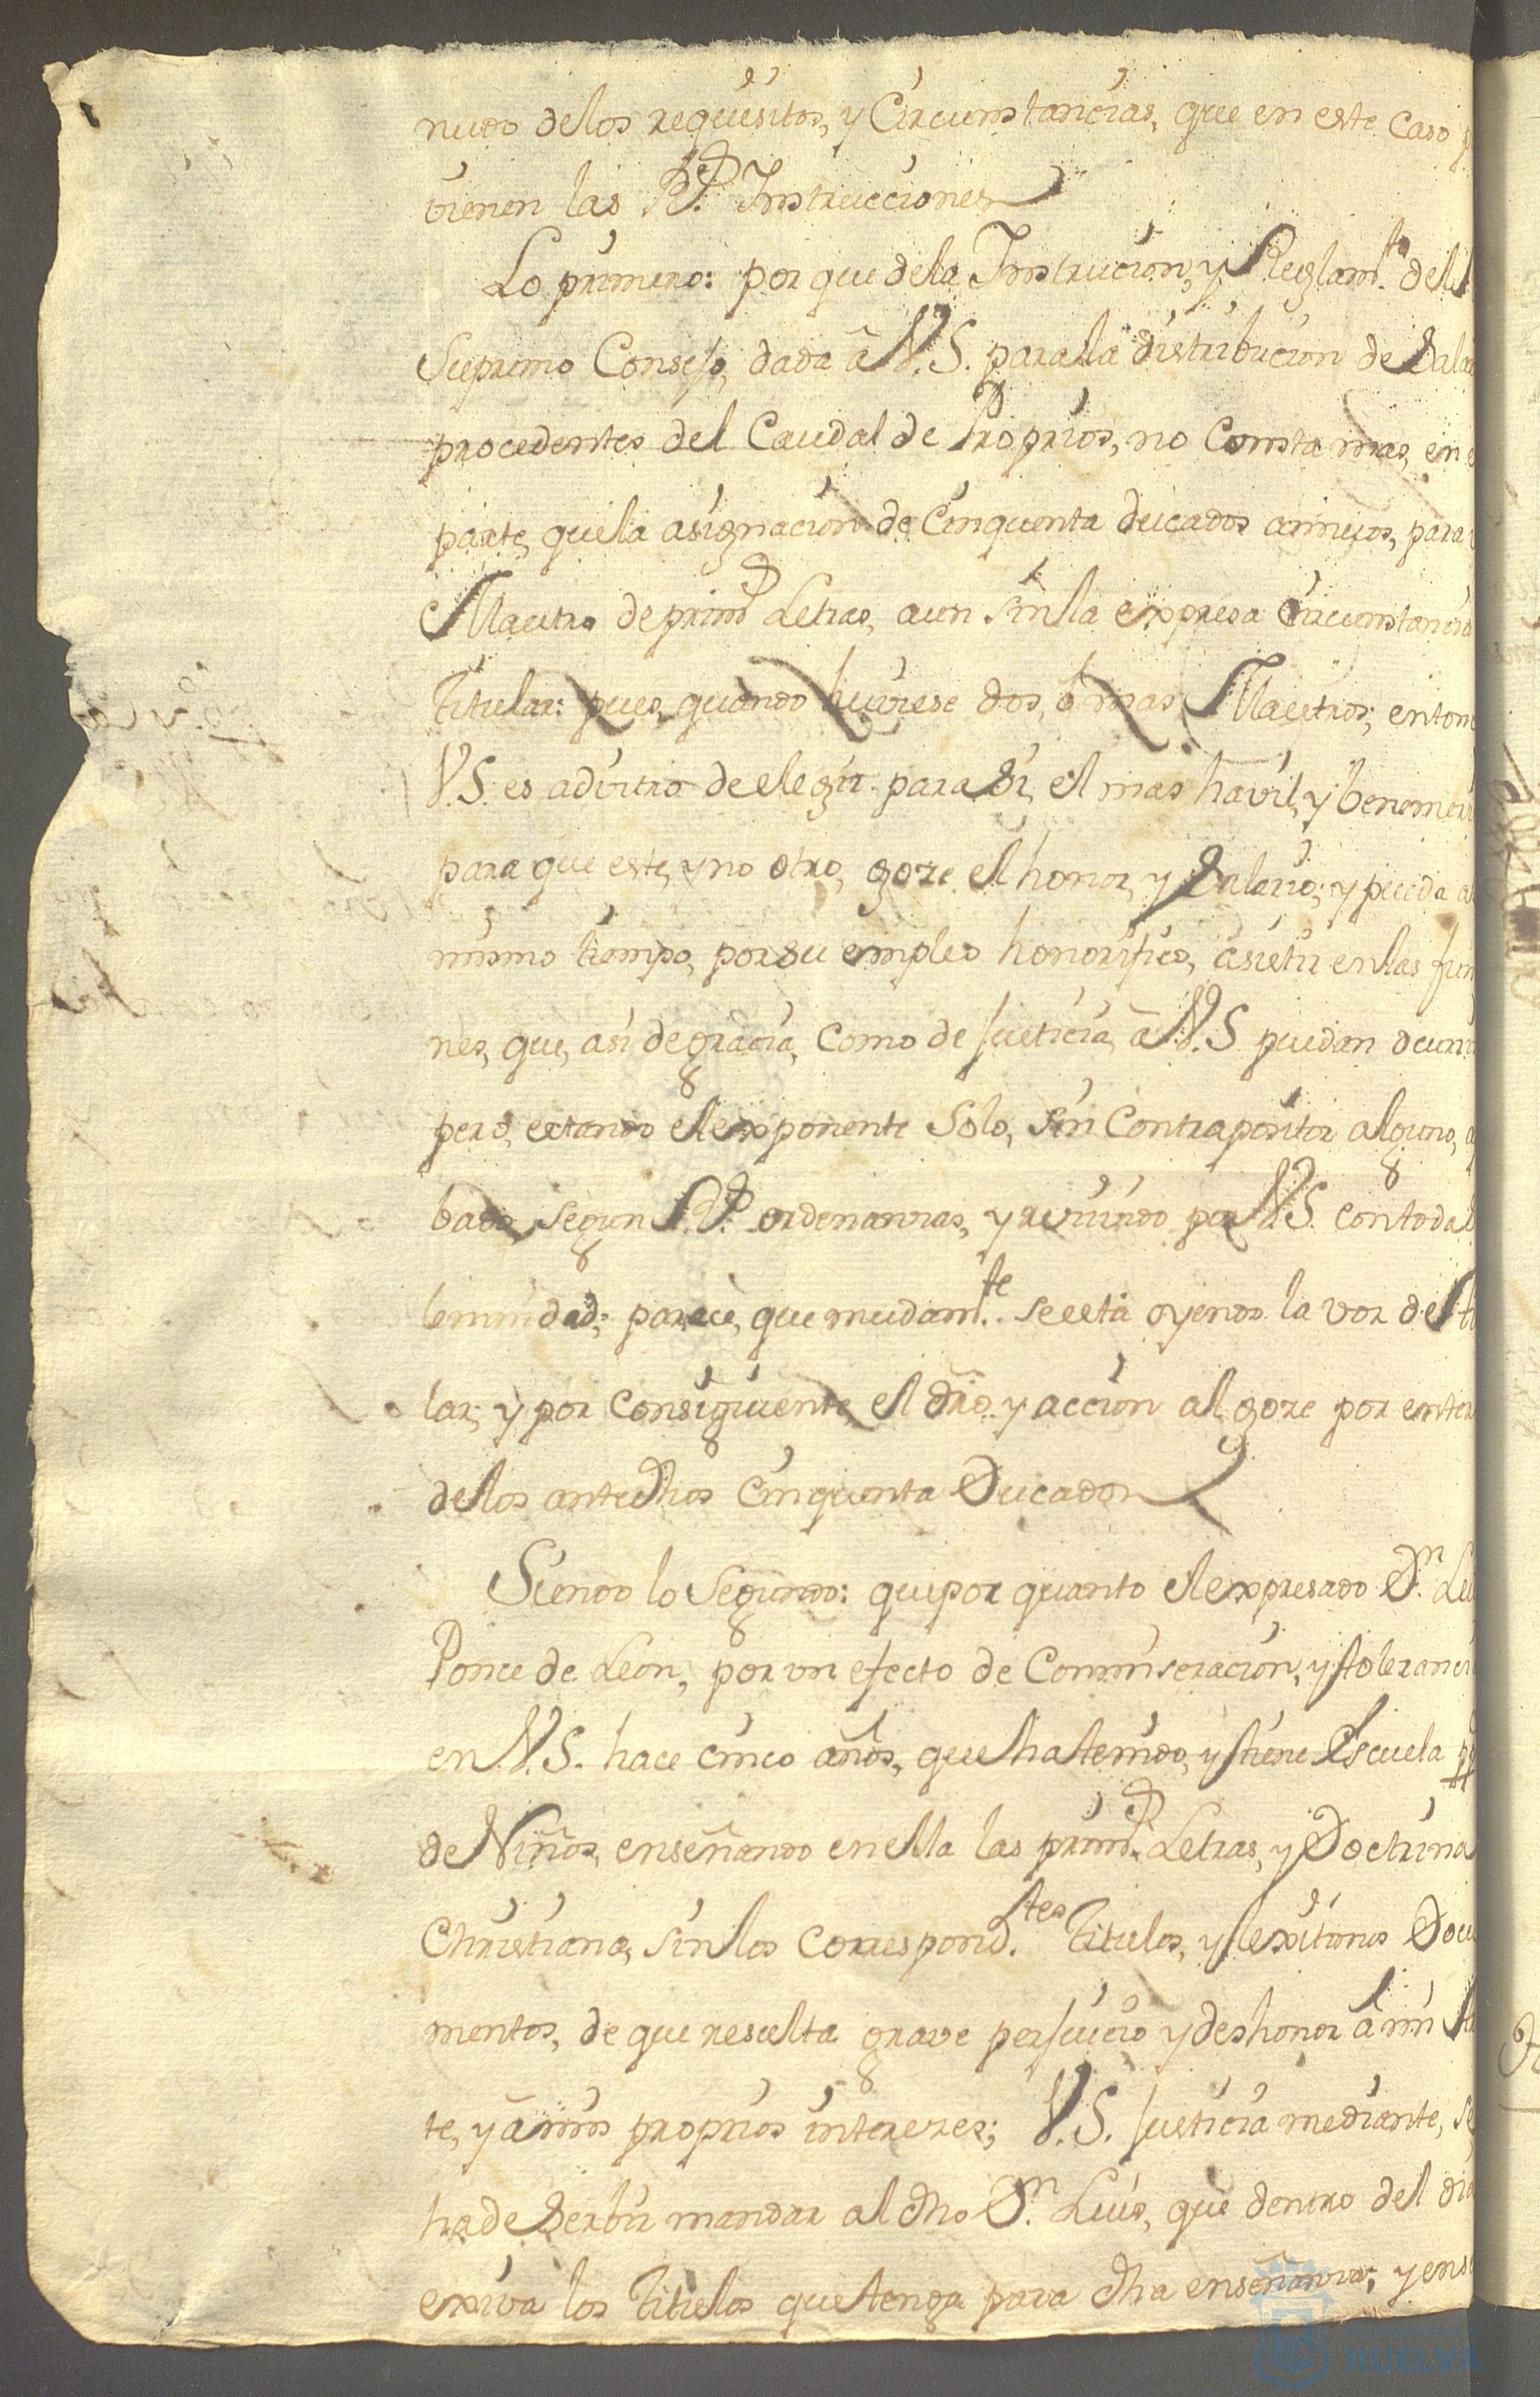 nudo delos requisitos, y Circunstancias, que en este Caso p
vienen las R.ˢ Instrucciones
Lo primero: por que dela Instrucion, y Reglam.to del
Supremo Consejo, dada â V.S. para la distribucion de Sala
procedentes del Caudal de Proprios, no Consta mas, en e
parte, que la asignacion de Cinquenta ducados annuos, para
Maestro de prim.ˢ Letras, aun sin la expresa circunstancia
Titular: pues, quando huviese dos, ó mas Maestros; enton
V.S. es advitro de elegir para Si, el mas havil, y benemeri
para que este, y no otro, goze el honor, y Salario; y pueda al
mismo tiempo, por su empleo honorifico, asistir en las fun
nes, que, asi de gracia, como de justicia, â V.S puedan ocurri
pero, estando el exponente Solo, sin Contrapositor alguno, a
bado segun R.ˢ ordenanzas, y rezivido por V.S. con toda
lemnidad; parece, que mudam.te se está oyendo la voz de ti
lar; y por consiguiente, el dr̃o, y accion al goze por enter
delos antedhos Cinquenta Ducados
Siendo lo Segundo: que por quanto el expresado D.n Lui
Ponce de Leon, por un efecto de Conmiseracion, y tolerancia
en V.S. hace cinco años, que ha tenido, y tiene Escuela pp
de Niños, enseñando en ella las prim.ˢ Letras, y Doctrina
Christiana, sin los Correspond.tes Titulos, y lexitimos Docu
mentos, de que resulta grave perjuicio y deshonor â mi
te, y â mis proprios intereres; V.S. justicia mediante, se
ha de Serbir mandar al dho D.n Luis, que dentro del dia
exiva los Titulos que tenga para dha enseñanza; y ens
HUELVA